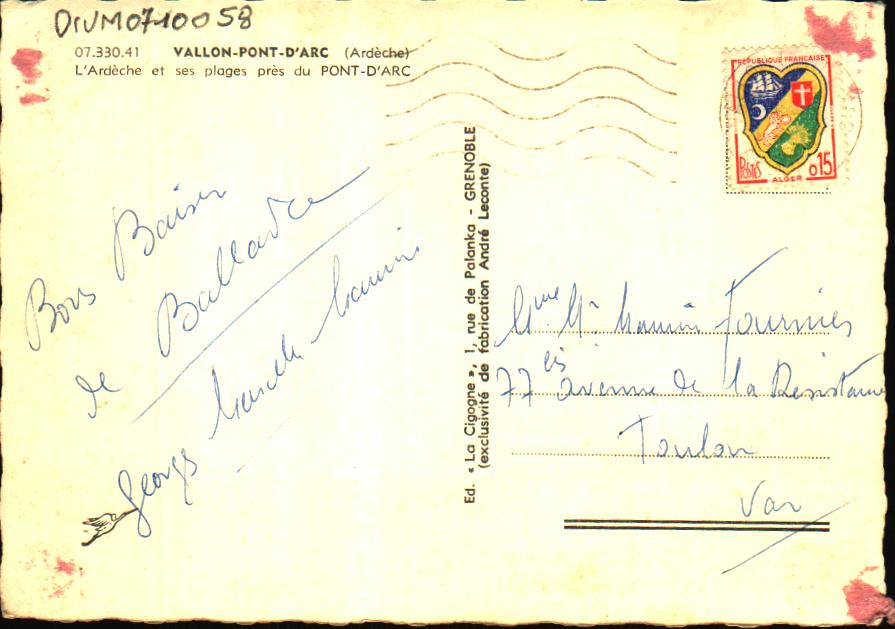 DIVM0710058
07.330.41 VALLON-PONT-D'ARC (Ardèche)
L'Ardèche et ses plages près du PONT-D'ARC
RÉPUBLIQUE FRANÇAISE
POSTES 0,15
ALGER
Bons Baisers
de Ballade
Georges Marcelle Maurin
Ed. « La Cigogne », 1, rue de Palanka - GRENOBLE
(exclusivité de fabrication André Leconte)
Mme Mr Maurin Fournier
77 bis avenue de la Résistance
Toulon
Var